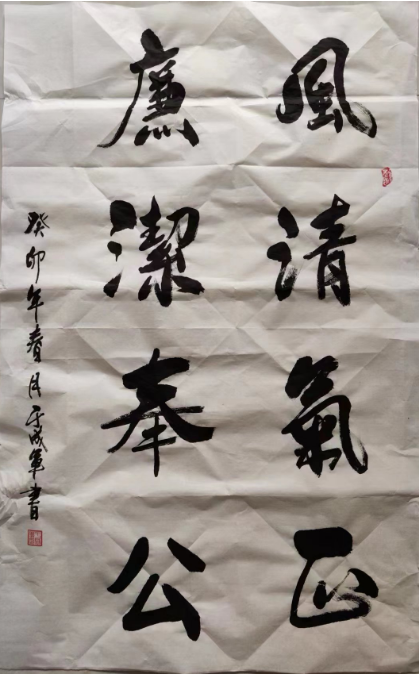 風清氣正
廉潔奉公
癸卯年春月于成軍書